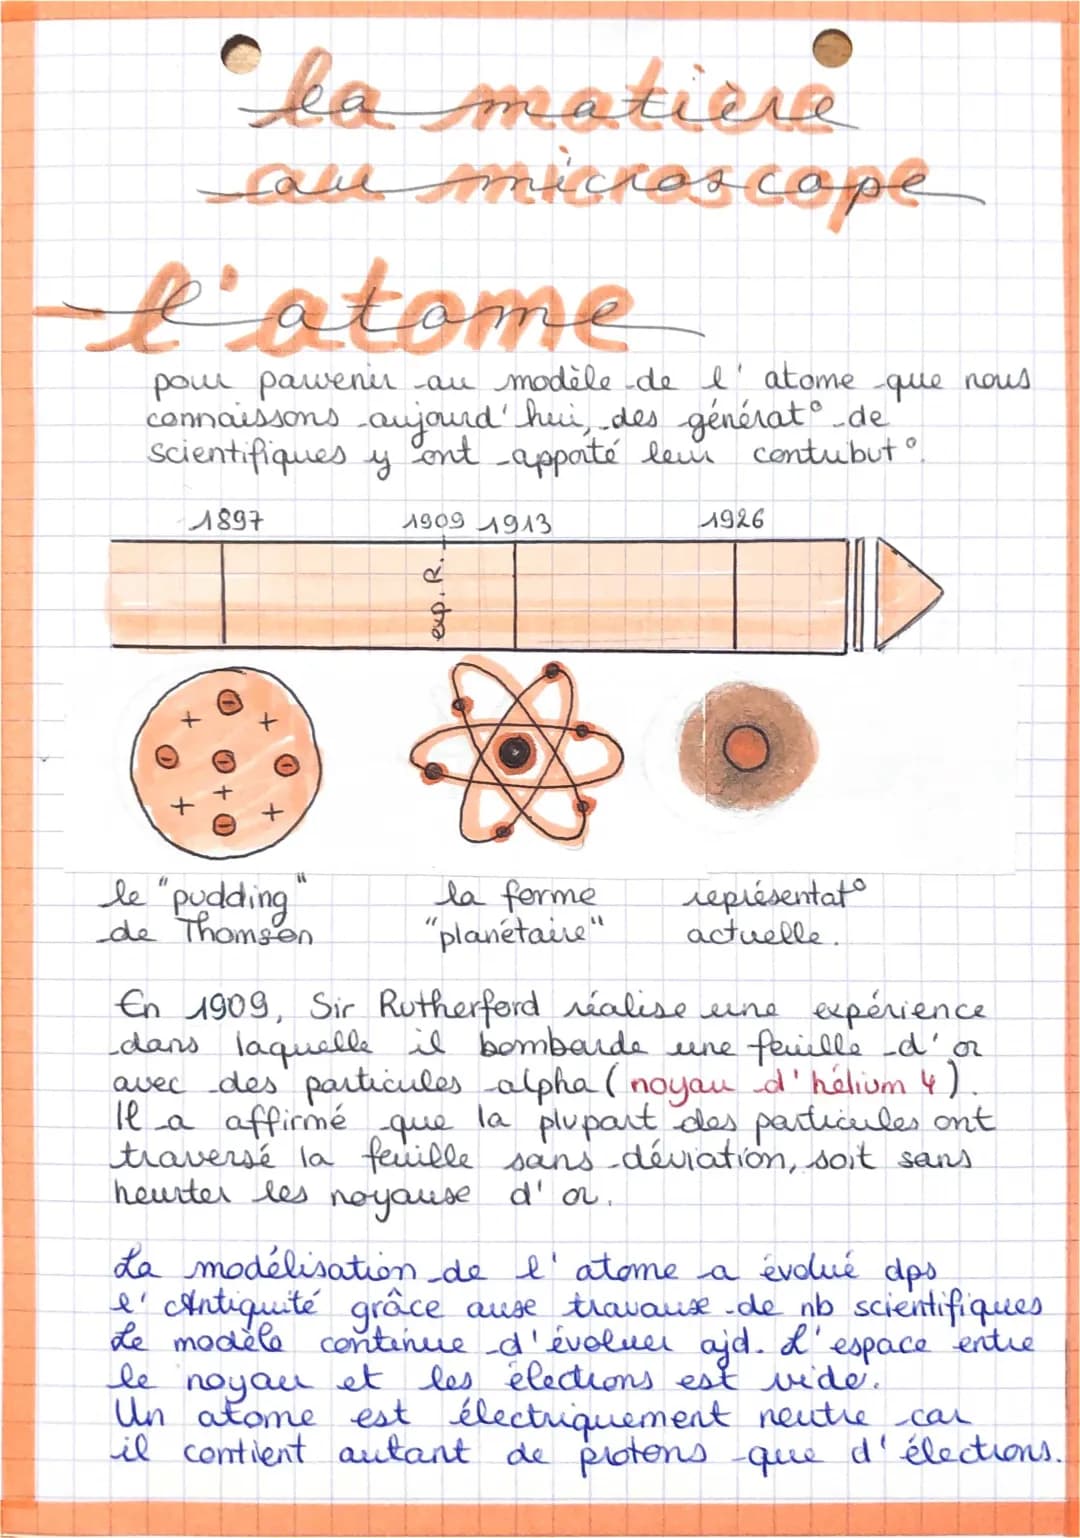 la matière
au microscope
l'atome
pour parvenir au modèle de l'atome que nous
connaissons aujourd'hui, des générat° de
scientifiques y ont apporté leur contribut°.
1897 1909 1913 1926
exp. R.
+ - + - - - + + + -
le "pudding" la forme représentat°
de Thomson "planétaire" actuelle.
En 1909, Sir Rutherford réalise une expérience
dans laquelle il bombarde une feuille d'or
avec des particules alpha (noyau d'hélium 4).
Il a affirmé que la plupart des particules ont
traversé la feuille sans déviation, soit sans
heurter les noyaux d'or.
La modélisation de l'atome a évolué dps
l'Antiquité grâce aux travaux de nb scientifiques
Le modèle continue d'évoluer ajd. L'espace entre
le noyau et les électrons est vide.
Un atome est électriquement neutre car
il contient autant de protons que d'électrons.